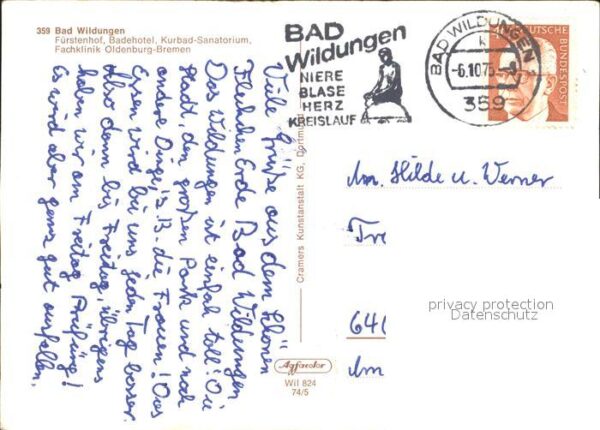 359 Bad Wildungen
Fürstenhof, Badehotel, Kurbad-Sanatorium,
Fachklinik Oldenburg-Bremen
Viele Grüße aus dem schönen
Fleckchen Erde Bad Wildungen
Das Wildungen ist einfach toll! Die
Stadt, den großen Park und noch
andere Dinge, z.B. die Frauen! Das
Essen wird bei uns jeden Tag besser.
Also denn bis Freitag, übrigens
haben wir am Freitag Prüfung!
Es wird aber ganz gut ausfallen.
BAD
Wildungen
NIERE
BLASE
HERZ
KREISLAUF
BAD WILDUNGEN
-6.10.75-
359
DEUTSCHE
BUNDESPOST
Cramers Kunstanstalt KG, Dortmund
Agfacolor
Wil 824
74/5
An. Hilde u. Werner
Tre
641
Am
privacy protection
Datenschutz